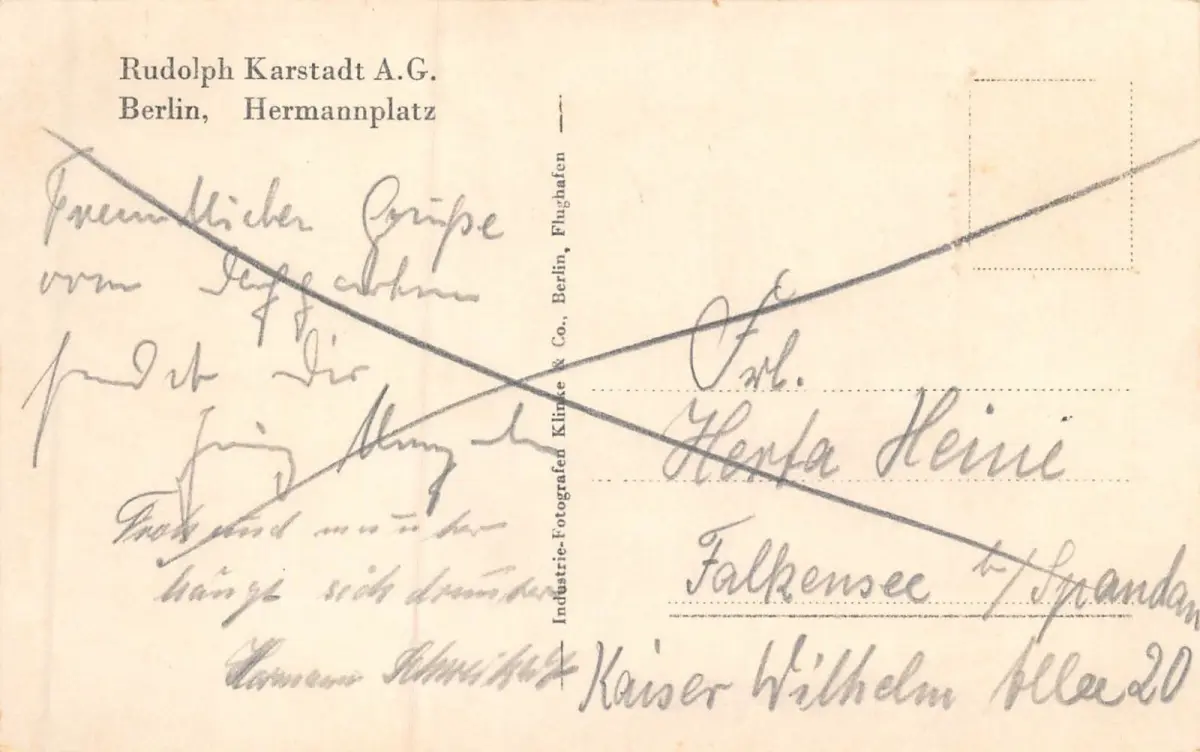 Rudolph Karstadt A.G.
Berlin, Hermannplatz
Freundlichen Grüße
vom Dachgarten
sendet Dir
Froh und munter
hängt sich drunter
Hermann
Industrie-Fotografen Klinke & Co., Berlin, Flughafen
Frl.
Herta Heine
Falkensee b/Spandau
Kaiser Wilhelm Allee 20